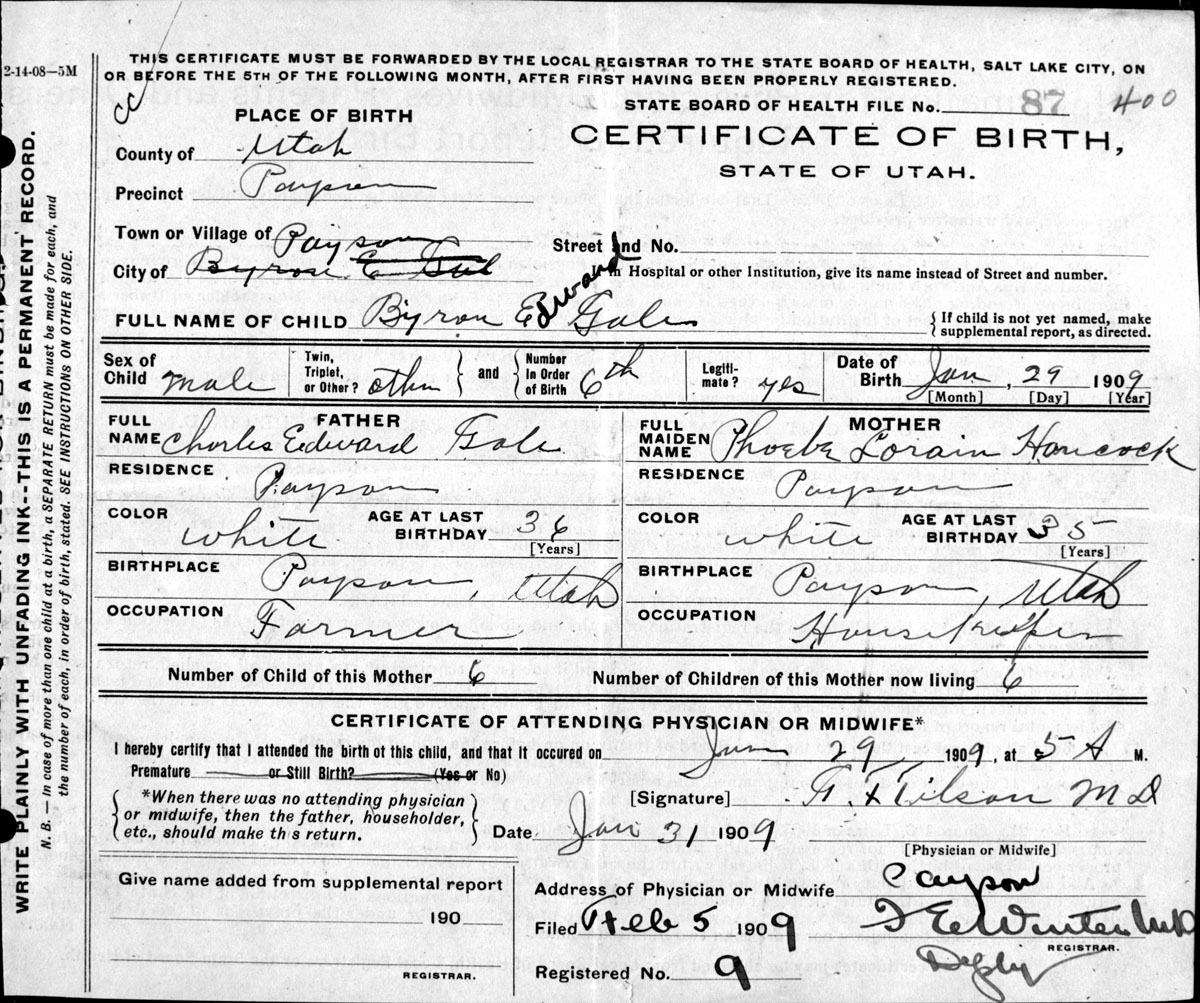 2-14-08—5M
THIS CERTIFICATE MUST BE FORWARDED BY THE LOCAL REGISTRAR TO THE STATE BOARD OF HEALTH, SALT LAKE CITY, ON
OR BEFORE THE 5TH OF THE FOLLOWING MONTH, AFTER FIRST HAVING BEEN PROPERLY REGISTERED.
STATE BOARD OF HEALTH FILE No. 87 400
PLACE OF BIRTH
CERTIFICATE OF BIRTH,
STATE OF UTAH.
County of Utah
Precinct Payson
Town or Village of Payson
Street and No.
City of Byron E Gale
In Hospital or other Institution, give its name instead of Street and number.
FULL NAME OF CHILD Byron Edward Gale
{ If child is not yet named, make
supplemental report, as directed.
Sex of Child Male
Twin, Triplet, or Other? other } and { Number In Order of Birth 6th
Legiti-mate? yes
Date of Birth Jan. 29 1909
[Month] [Day] [Year]
FATHER
FULL NAME Charles Edward Gale
RESIDENCE Payson
COLOR White
AGE AT LAST BIRTHDAY 36
[Years]
BIRTHPLACE Payson, Utah
OCCUPATION Farmer
MOTHER
FULL MAIDEN NAME Phoebe Lorain Hancock
RESIDENCE Payson
COLOR White
AGE AT LAST BIRTHDAY 35
[Years]
BIRTHPLACE Payson, Utah
OCCUPATION Housekeeper
Number of Child of this Mother 6
Number of Children of this Mother now living 6
CERTIFICATE OF ATTENDING PHYSICIAN OR MIDWIFE*
I hereby certify that I attended the birth of this child, and that it occured on Jan 29, 1909, at 5 A M.
Premature or Still Birth? (Yes or No)
{ *When there was no attending physician
or midwife, then the father, householder,
etc., should make this return. }
[Signature] Tilson M D
Date Jan 31 1909
[Physician or Midwife]
Give name added from supplemental report
190
REGISTRAR.
Address of Physician or Midwife Payson
Filed Feb 5 1909
REGISTRAR.
Registered No. 9
WRITE PLAINLY WITH UNFADING INK--THIS IS A PERMANENT RECORD.
N. B. — In case of more than one child at a birth, a SEPARATE RETURN must be made for each, and
the number of each, in order of birth, stated. SEE INSTRUCTIONS ON OTHER SIDE.